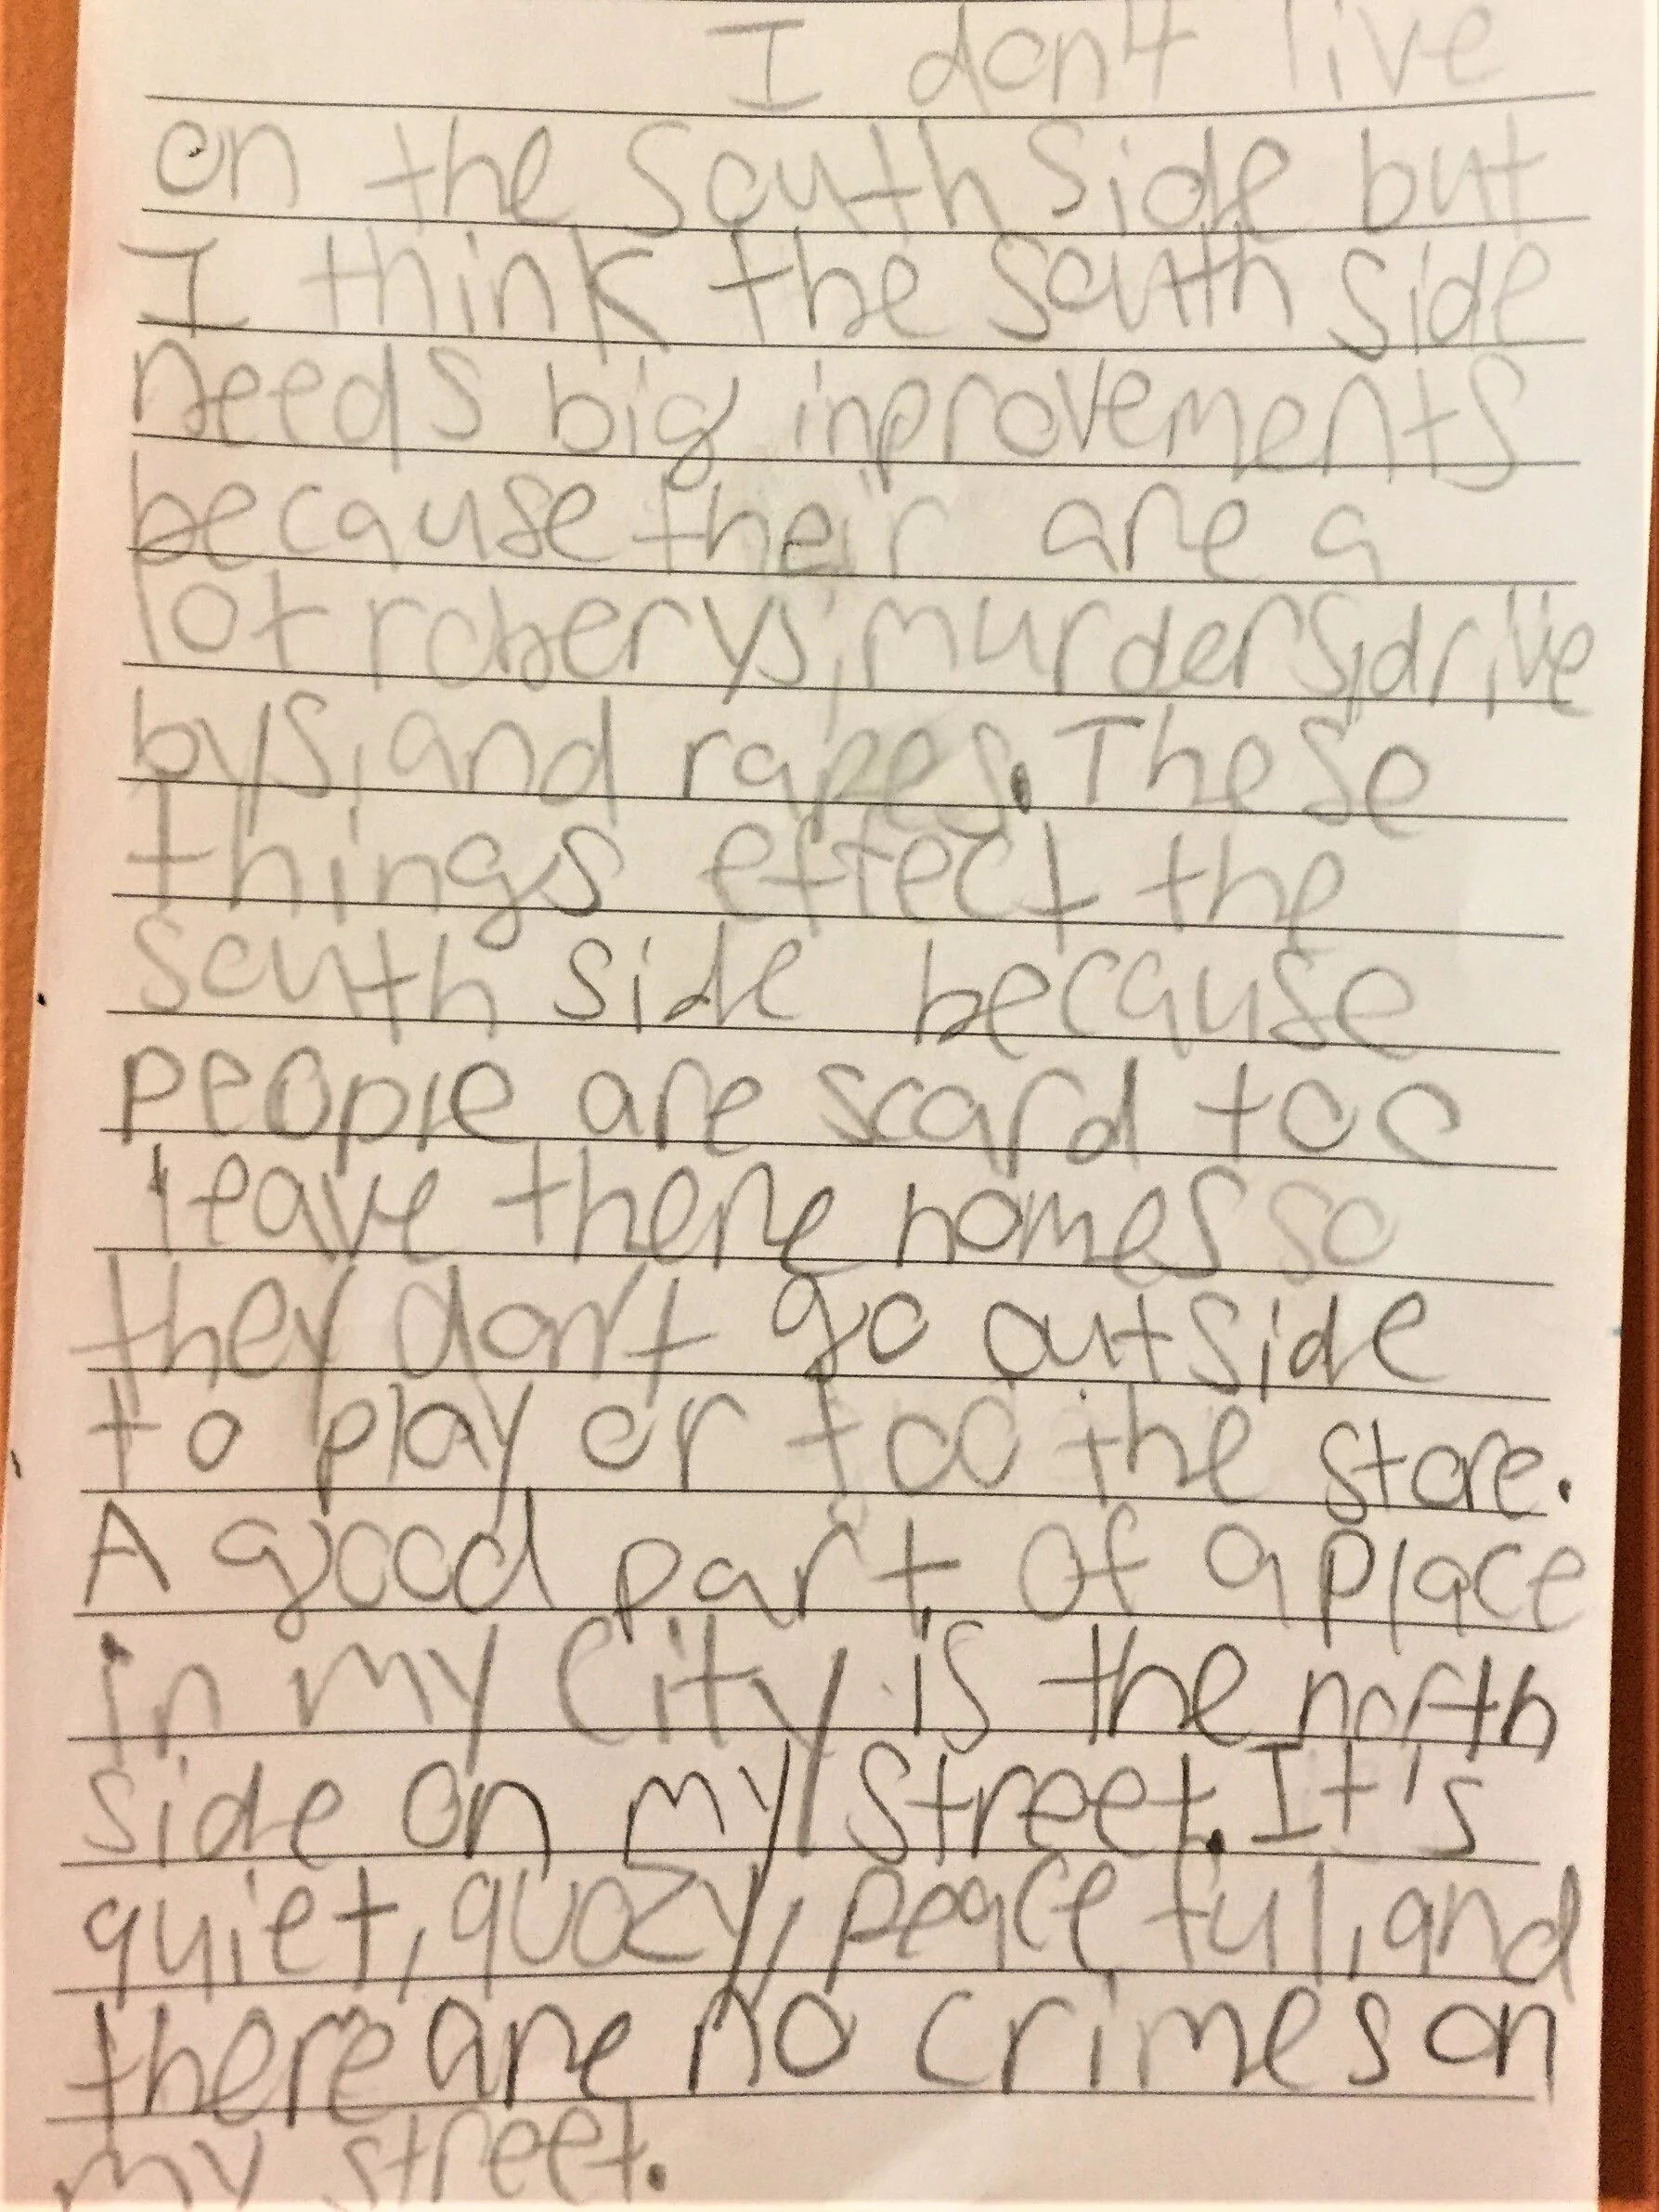 I don't live
on the South Side but
I think the south side
needs big inprovements
because their are a
lot roberys, murders, drive
bys, and rapes. These
things effect the
south side because
people are scard too
leave there homes so
they don't go outside
to play or too the store.
A good part of a place
in my city is the north
side on my street. It's
quiet, quozy, peaceful, and
there are no crimes on
my street.